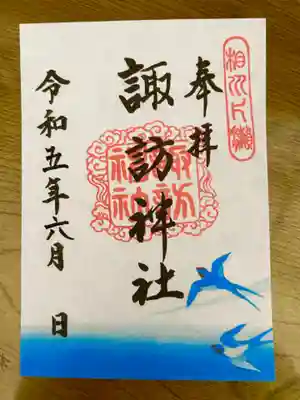 奉拝
諏訪神社
令和五年六月 日
諏訪神社